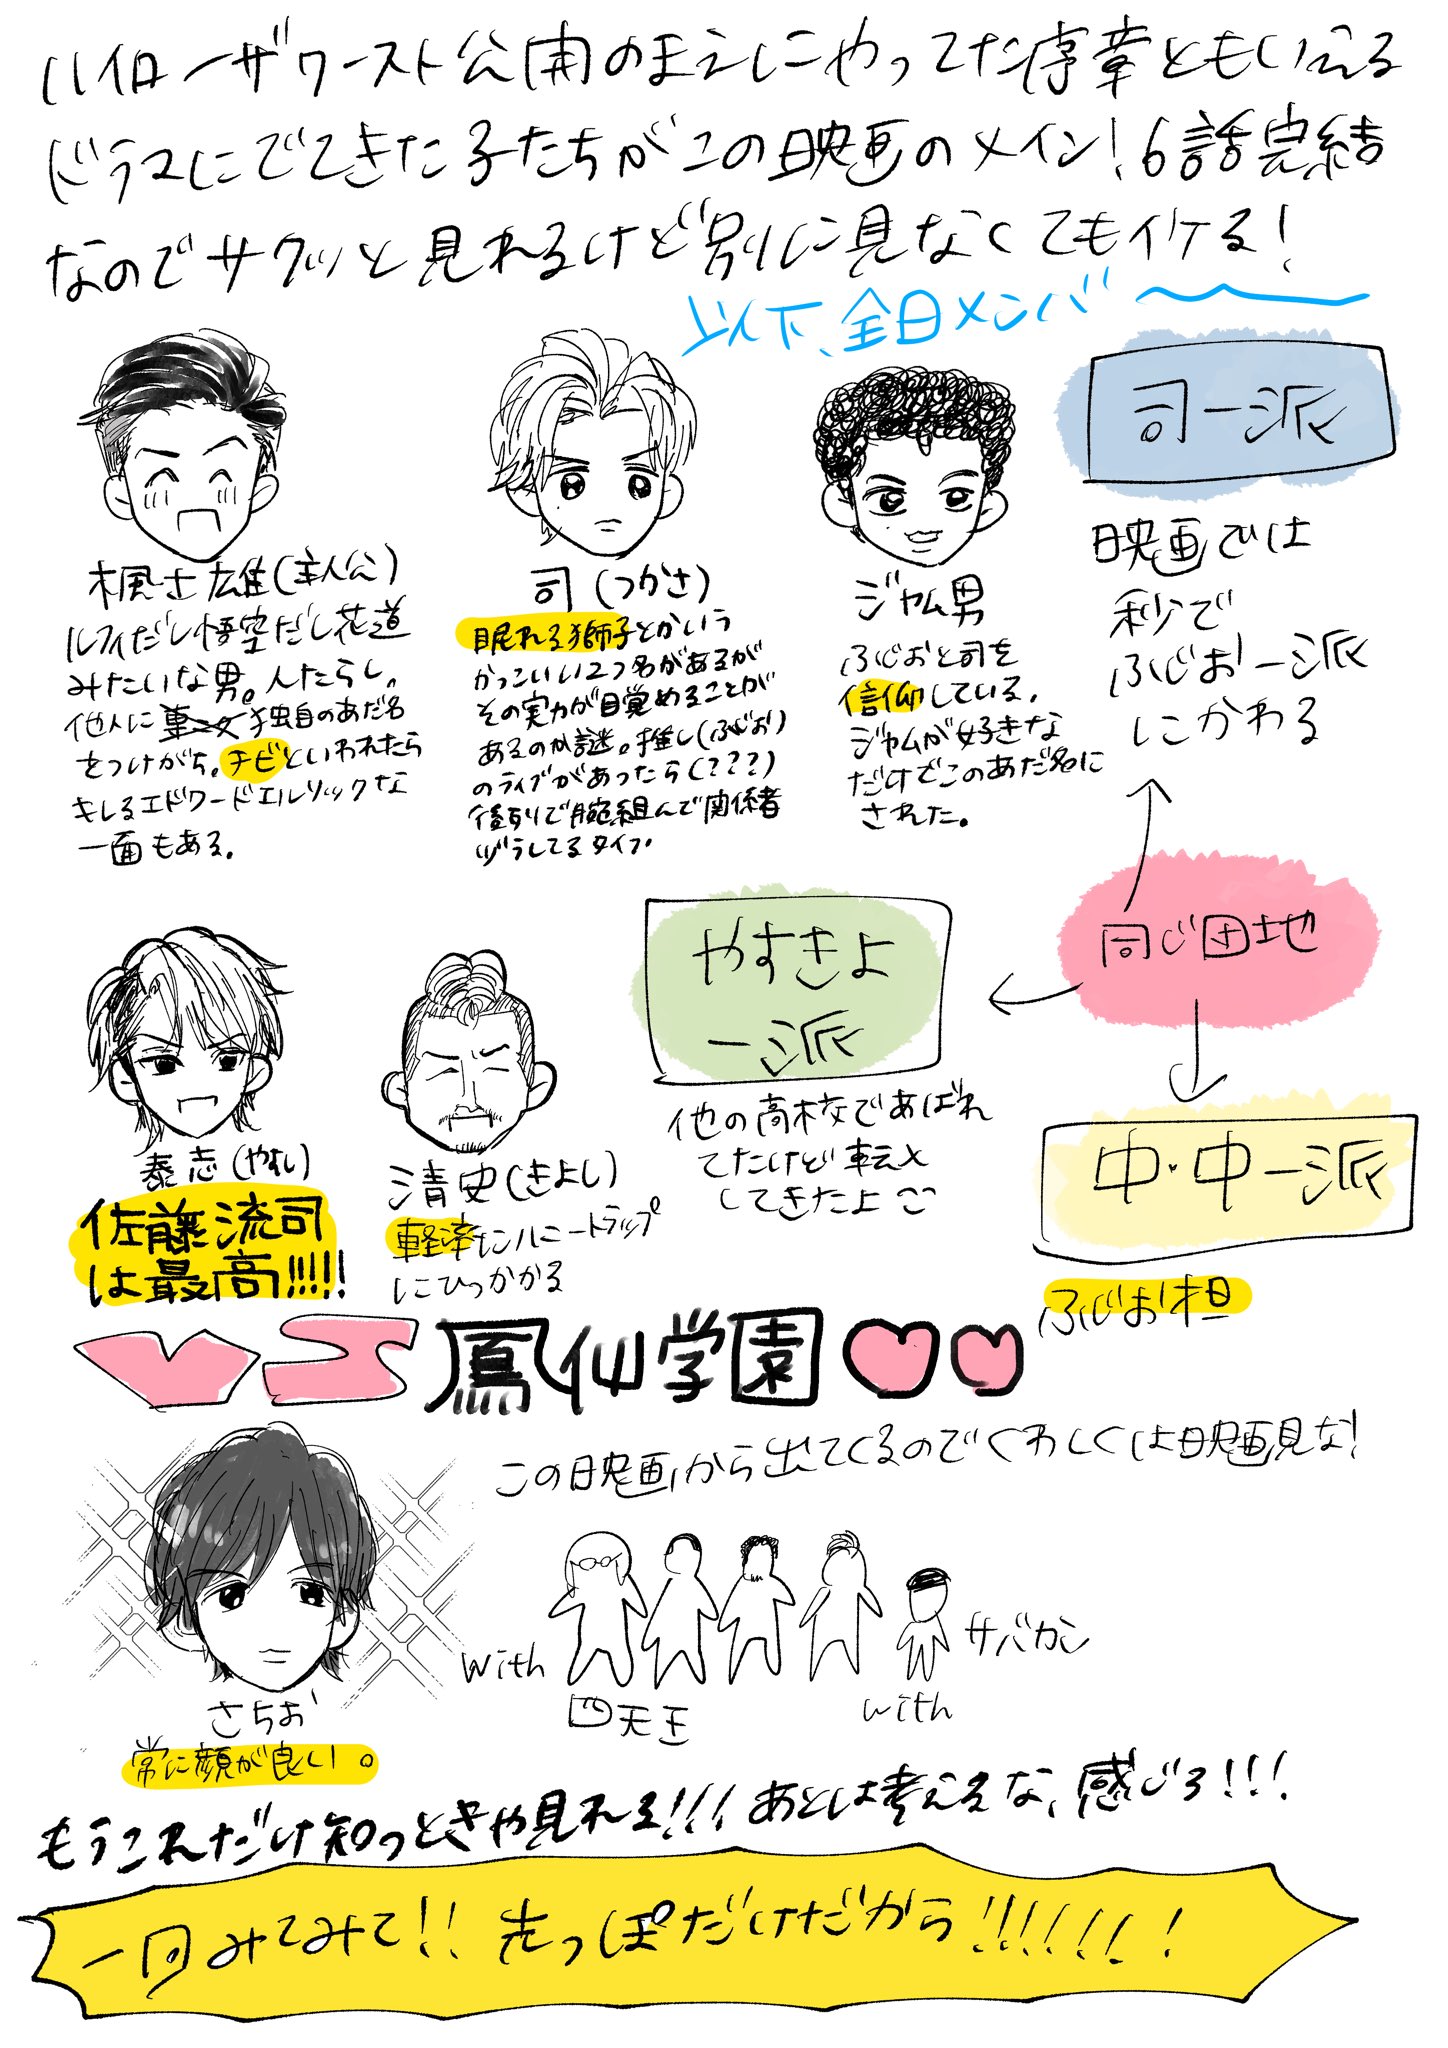 ハイローザワースト公開のまえにやってた序章ともいえる
ドラマにでてきた子たちがこの映画のメイン!6話完結
なのでサクッと見れるけど別に見なくてもイケる!
以下、全日メンバ〜
司一派
映画では
秒で
ふじお一派
にかわる
楓士雄(主人公)
ルフィだし悟空だし花道
みたいな男。人たらし。
他人に独自のあだ名
をつけがち。チビといわれたら
キレるエドワードエルリックな
一面もある。
司(つかさ)
眠れる獅子とかいう
かっこいい2つ名があるが
その実力が目覚めることが
あるのか謎。推し(ふじお)
のライブがあったら(???)
後列で腕組んで関係者
ヅラしてるタイプ.
ジャム男
ふじおと司を
信仰している.
ジャムが好きな
だけでこのあだ名に
された。
同じ団地
やすきよ
一派
他の高校であばれ
てたけど転入
してきたよ
中・中一派
ふじお担
泰志(やすし)
佐藤流司
は最高!!!!!
清史(きよし)
軽率にハニートラップ
にひっかかる
VS 鳳仙学園
この映画から出てくるのでくわしくは映画見な!
さちお
常に顔が良い。
with
四天王
with
サバカン
もうこれだけ知っときゃ見れる!!!あとは考えるな、感じろ!!!
一回みてみて!!先っぽだけだから!!!!!!!